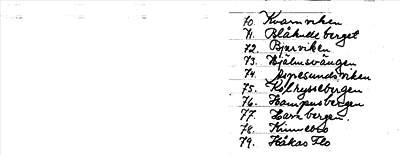 70. Kvarnviken
71. Blåkullberget
72. Bjurviken
73. Hjälmsvängen
74. Aspesundsviken
75. Kolhyseberget
76. Hampusbergen
77. Harabergen.
78.
79. Håkas Flo